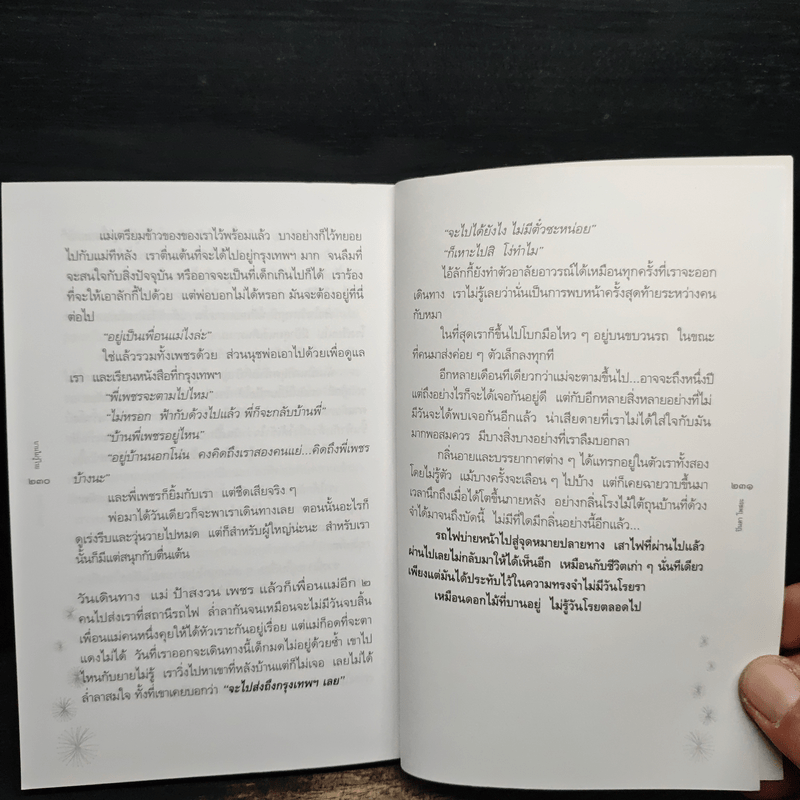 แม่เตรียมข้าวของของเราไว้พร้อมแล้ว บางอย่างก็ไว้ทยอย
ไปกับแม่ทีหลัง เราตื่นเต้นที่จะได้ไปอยู่กรุงเทพฯ มาก จนลืมที่
จะสนใจกับสิ่งปัจจุบัน หรืออาจจะเป็นที่เด็กเกินไปก็ได้ เราร้อง
ที่จะให้เอาลักกี้ไปด้วย แต่พ่อบอกไม่ได้หรอก มันจะต้องอยู่ที่นี่
ต่อไป
“อยู่เป็นเพื่อนแม่ไงล่ะ”
ใช่แล้วรวมทั้งเพชรด้วย ส่วนนุชพ่อเอาไปด้วยเพื่อดูแล
เรา และเรียนหนังสือที่กรุงเทพฯ
“พี่เพชรจะตามไปไหม”
“ไม่หรอก ฟ้ากับด้วงไปแล้ว พี่ก็จะกลับบ้านพี่”
“บ้านพี่เพชรอยู่ไหน”
“อยู่บ้านนอกโน่น คงคิดถึงเราสองคนแย่...คิดถึงพี่เพชร
บ้างนะ”
และพี่เพชรก็ยิ้มกับเรา แต่ซืดเสียจริง ๆ
พ่อมาได้วันเดียวก็จะพาเราเดินทางเลย ตอนนั้นอะไรก็
ดูเร่งรีบและวุ่นวายไปหมด แต่ก็สำหรับผู้ใหญ่น่ะนะ สำหรับเรา
นั้นก็มีแต่สนุกกับตื่นเต้น
วันเดินทาง แม่ ป้าสงวน เพชร แล้วก็เพื่อนแม่อีก ๒
คนไปส่งเราที่สถานีรถไฟ ล่ำลากันจนเหมือนจะไม่มีวันจบสิ้น
เพื่อนแม่คนหนึ่งคุยให้ได้หัวเราะกันอยู่เรื่อย แต่แม่ก็อดที่จะตา
แดงไม่ได้ วันที่เราออกจะเดินทางนี้เด็กมดไม่อยู่ด้วยซ้ำ เขาไป
ไหนกับยายไม่รู้ เราวิ่งไปหาเขาที่หลังบ้านแต่ก็ไม่เจอ เลยไม่ได้
ล่ำลาสมใจ ทั้งที่เขาเคยบอกว่า “จะไปส่งถึงกรุงเทพฯ เลย”
๒๓๐
“จะไปได้ยังไง ไม่มีตั๋วซะหน่อย”
“ก็เหาะไปสิ โง่ทำไม”
ไอ้ลักกี้ยังทำตัวอาลัยอาวรณ์ได้เหมือนทุกครั้งที่เราจะออก
เดินทาง เราไม่รู้เลยว่านั่นเป็นการพบหน้าครั้งสุดท้ายระหว่างคน
กับหมา
ในที่สุดเราก็ขึ้นไปโบกมือไหว ๆ อยู่บนขบวนรถ ในขณะ
ที่คนมาส่งค่อย ๆ ตัวเล็กลงทุกที
อีกหลายเดือนทีเดียวกว่าแม่จะตามขึ้นไป...อาจจะถึงหนึ่งปี
แต่ถึงอย่างไรก็จะได้เจอกันอยู่ดี แต่กับอีกหลายสิ่งหลายอย่างที่ไม่
มีวันจะได้พบเจอกันอีกแล้ว น่าเสียดายที่เราไม่ได้ใส่ใจกับมัน
มากพอสมควร มีบางสิ่งบางอย่างที่เราลืมบอกลา
กลิ่นอายและบรรยากาศต่าง ๆ ได้แทรกอยู่ในตัวเราทั้งสอง
โดยไม่รู้ตัว แม้บางครั้งจะเลือน ๆ ไปบ้าง แต่ก็เคยฉายวาบขึ้นมา
เวลานึกถึงเมื่อได้โตขึ้นภายหลัง อย่างกลิ่นโรงไม้ใต้ถุนบ้านที่ด้วง
จำได้มาจนถึงบัดนี้ ไม่มีที่ใดมีกลิ่นอย่างนี้อีกแล้ว...
รถไฟบ่ายหน้าไปสู่จุดหมายปลายทาง เสาไฟที่ผ่านไปแล้ว
ผ่านไปเลยไม่กลับมาให้ได้เห็นอีก เหมือนกับชีวิตเก่า ๆ นั่นทีเดียว
เพียงแต่มันได้ประทับไว้ในความทรงจำไม่มีวันโรยรา
เหมือนดอกไม้ที่บานอยู่ ไม่รู้วันโรยตลอดไป
๒๓๑